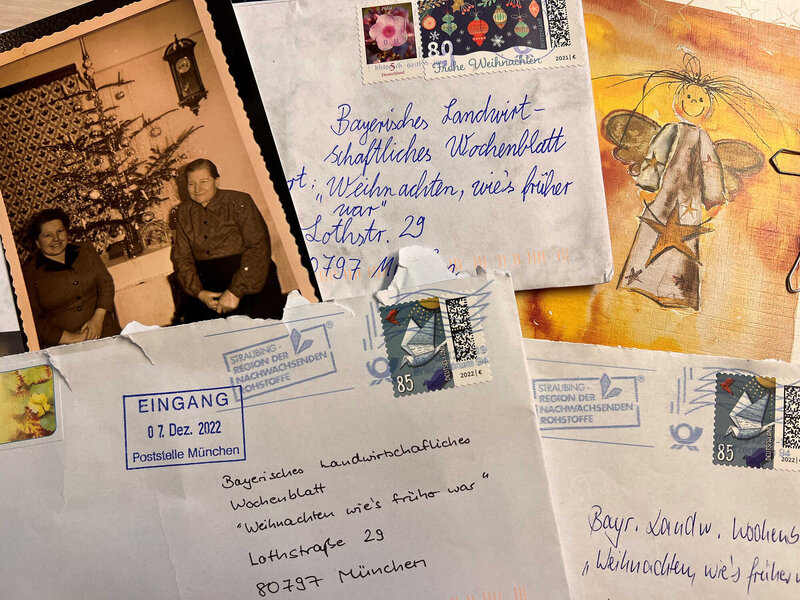 80
Frohe Weihnachten
2021 | €
Deutschland
Bayerisches Landwirt-
schaftliches Wochenblatt
"Weihnachten, wie's früher
war"
Lothstr. 29
80797 München
STRAUBING -
REGION DER
NACHWACHSENDEN
ROHSTOFFE
85
2022 | €
EINGANG
07. Dez. 2022
Poststelle München
Bayerisches Landwirtschafliches
Wochenblatt
"Weihnachten wie's früher war"
Lothstraße 29
80797 München
STRAUBING -
REGION DER
NACHWACHSENDEN
ROHSTOFFE
85
2022 | €
Bayr. Landw. Wochenb
"Weihnachten, wie's früher